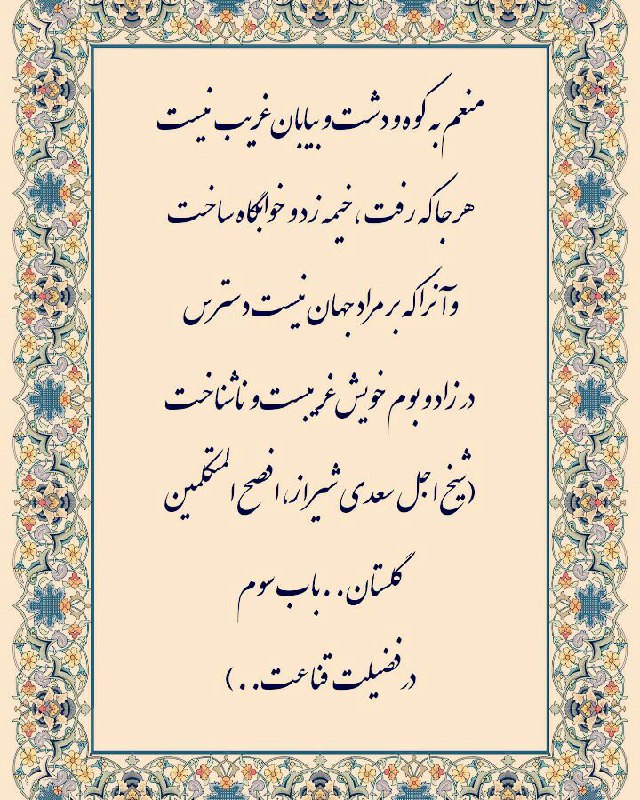 منعم به کوه و دشت و بیابان غریب نیست
هر جا که رفت، خیمه زد و خوابگاه ساخت
و آنرا که بر مراد جهان نیست دسترس
در زاد و بوم خویش غریبست و ناشناخت
(شیخ اجل سعدی شیراز، افصح المتکلمین
گلستان..باب سوم
در فضیلت قناعت..)